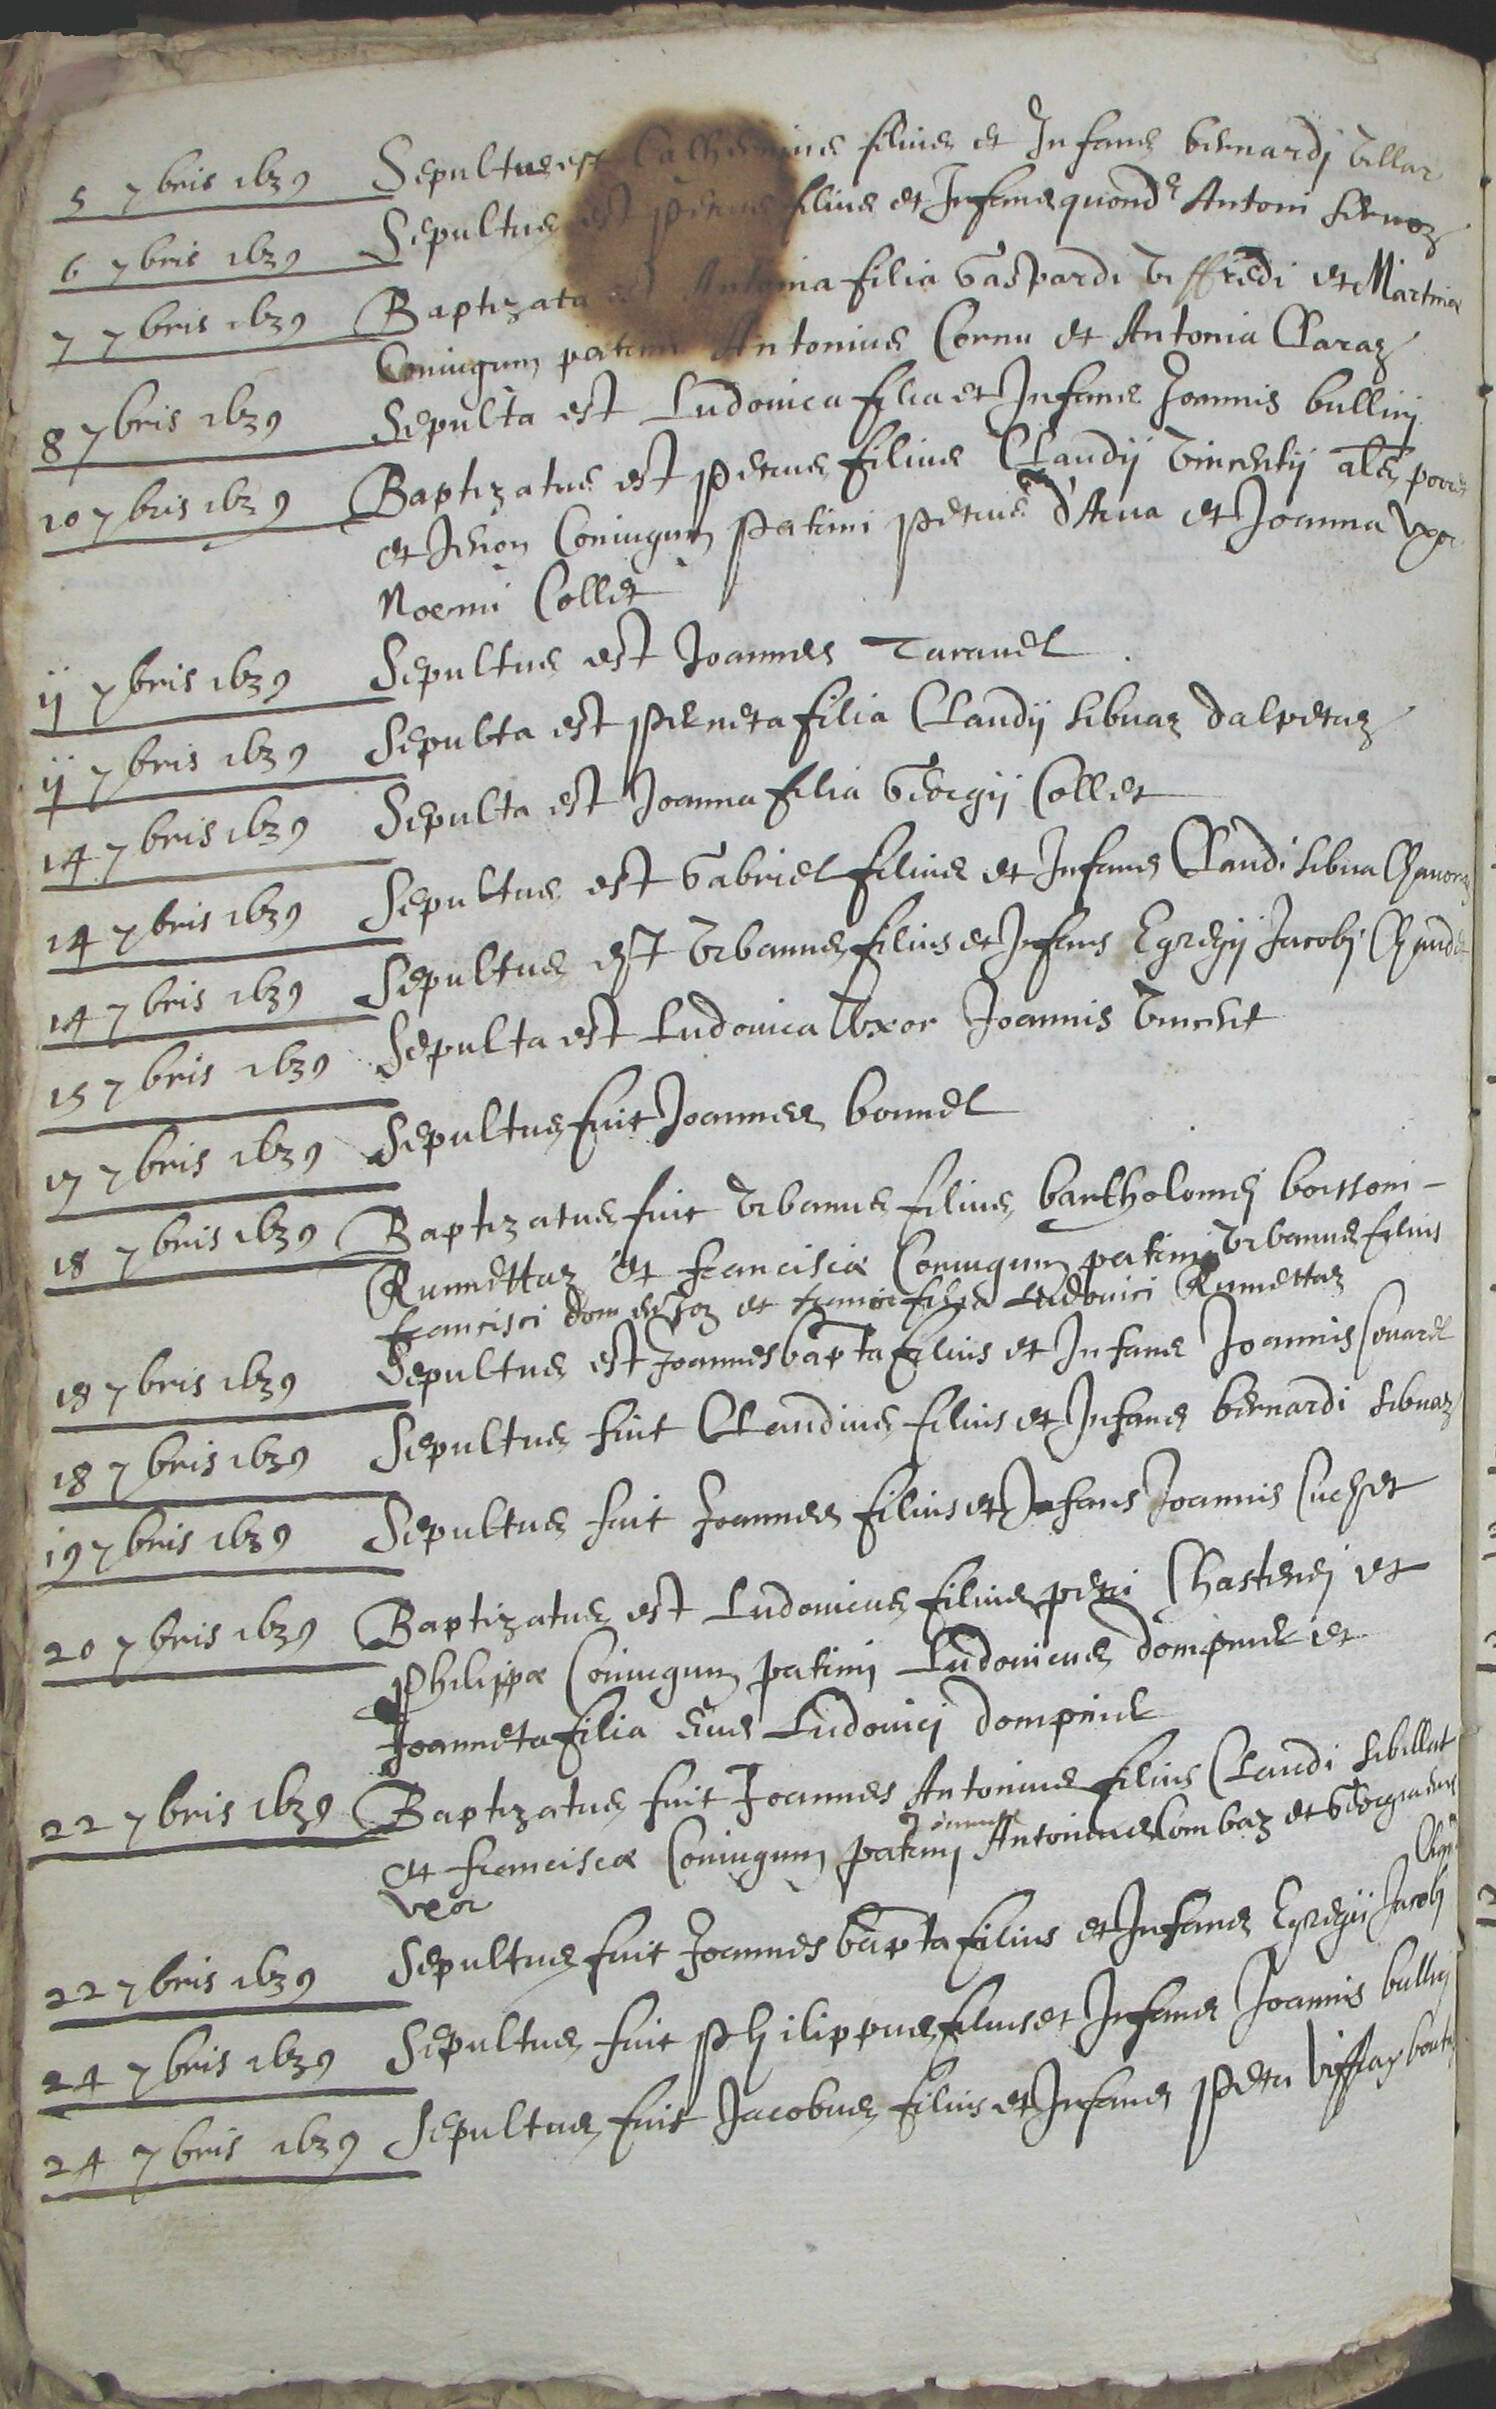 5 7bris 1639 Sepultus est Catherinus filius et Infans bernardj Villar
6 7bris 1639 Sepultus est petrus filius et Infans quond Antoni
7 7bris 1639 Baptizata est Antonia filia Gaspardi Viffredi et Martinæ
Coniugum patrini Antonius Cornu et Antonia Claraz
8 7bris 1639 Sepulta est Ludovica filia et Infans Joannis bullirj
10 7bris 1639 Baptizatus est petrus filius Claudij Vincentij als
et Coniugum Patrini petrus d'Arua et Joanna vxor
Noemi Collet
ij 7bris 1639 Sepultus est Joannes Taravel
ij 7bris 1639 Sepulta est perneta filia Claudij Sibuaz dalpetaz
14 7bris 1639 Sepulta est Joanna filia Georgij Collet
14 7bris 1639 Sepultus est Gabriel filius et Infans Claudi Sibua
14 7bris 1639 Sepultus est Vrbanus filius et Infans Egregij Jacobj
15 7bris 1639 Sepulta est Ludovica Vxor Joannis Vincent
17 7bris 1639 Sepultus fuit Joannes bonnel
18 7bris 1639 Baptizatus fuit Vrbanus filius bartholomej boissoni -
Rumettaz et franciscæ Coniugum patrini Vrbanus filius
francisci et filia Ludovici Rumettaz
18 7bris 1639 Sepultus est Joannes bapta filius et Infans Joannis
18 7bris 1639 Sepultus fuit Claudius filius et Infans bernardi Sibuaz
19 7bris 1639 Sepultus fuit Joannes filius et Infans Joannis Suchet
20 7bris 1639 Baptizatus est Ludovicus filius petri Chastenj et
Philippæ Coniugum patrinj Ludovicus dompnie et
Joanneta filia eius Ludovicj dompnie
22 7bris 1639 Baptizatus fuit Joannes Antonius filius Claudi Sibillat
et franciscæ Coniugum patrinj Joannes Antonius Combaz et Georgia eius
vxor
22 7bris 1639 Sepultus fuit Joannes bapta filius et Infans Egregii Jacobj
24 7bris 1639 Sepultus fuit Philippus filius et Infans Joannis bullrj
24 7bris 1639 Sepultus fuit Jacobus filius et Infans petri Viffray